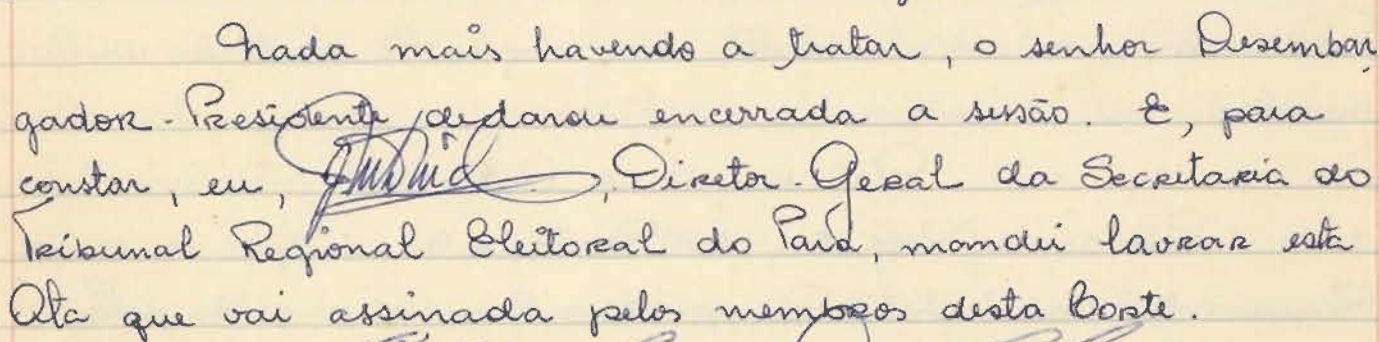 Nada mais havendo a tratar, o senhor Desembar
gador-Presidente declarou encerrada a sessão. E, para
constar, eu, , Diretor-Geral da Secretaria do
Tribunal Regional Eleitoral do Pará, mandei lavrar esta
Ata que vai assinada pelos membros desta Corte.